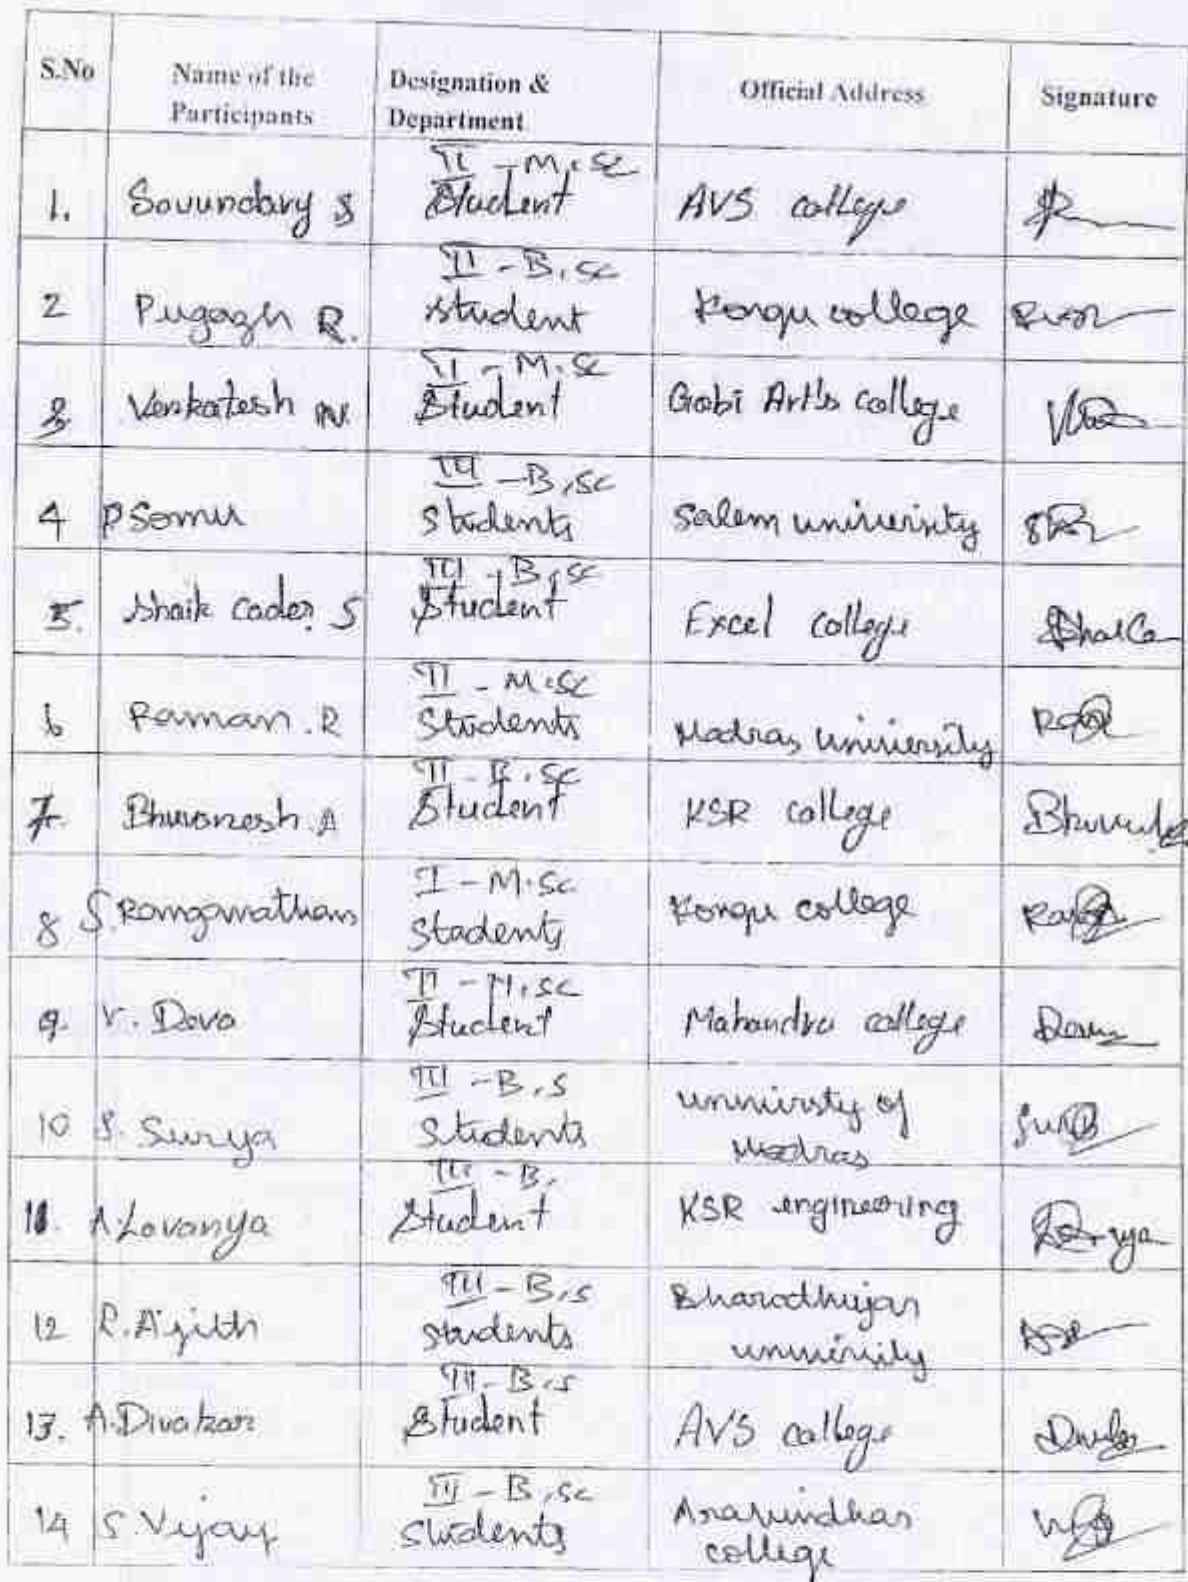 S.No Name of the Participants Designation & Department Official Address Signature
1. Savundary S II - M.Sc Student AVS college
2 Pugazh R. II - B.Sc student Kongu college
3. Venkatesh N. II - M.Sc Student Gobi Arts college
4 P Somu III - B.Sc students Salem university
5. Shaik Cader. S III - B.Sc Student Excel college
6 Raman. R II - M.Sc Students Madras university
7. Bhuvanesh. A II - B.Sc Student KSR college
8 S. Ranganathan I - M.Sc Students Kongu college
9. V. Deva II - M.Sc Student Mahendra college
10 S. Surya III - B.s Students university of Madras
11. A. Lavanya III - B. Student KSR engineering
12 R. Ajith III - B.s students Bharathiyar university
13. A. Divakar III - B.s Student AVS college
14 S. Vijay III - B.Sc students college